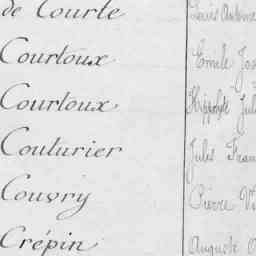 de Courte Louis Antoine
Courtoux Emile Jos
Courtoux Hippolyte Jul
Couturier Jules Fran
Couvry Pierre Vi
Crépin Auguste